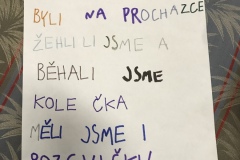 BYLI NA PROCHAZCE
ŽEHLILI JSME A
BĚHALI JSME
KOLE ČKA
MĚLI JSME I
ROZCVIČKU